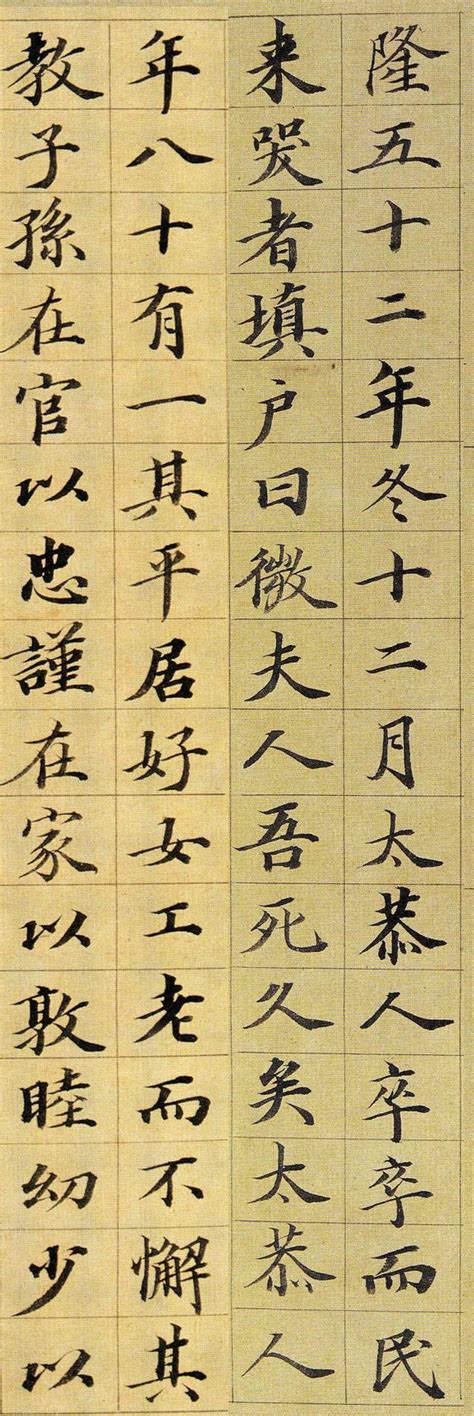 隆五十二年冬十二月太恭人卒卒而民
来哭者填户曰微夫人吾死久矣太恭人
年八十有一其平居好女工老而不懈其
教子孫在官以忠謹在家以敦睦幼少以